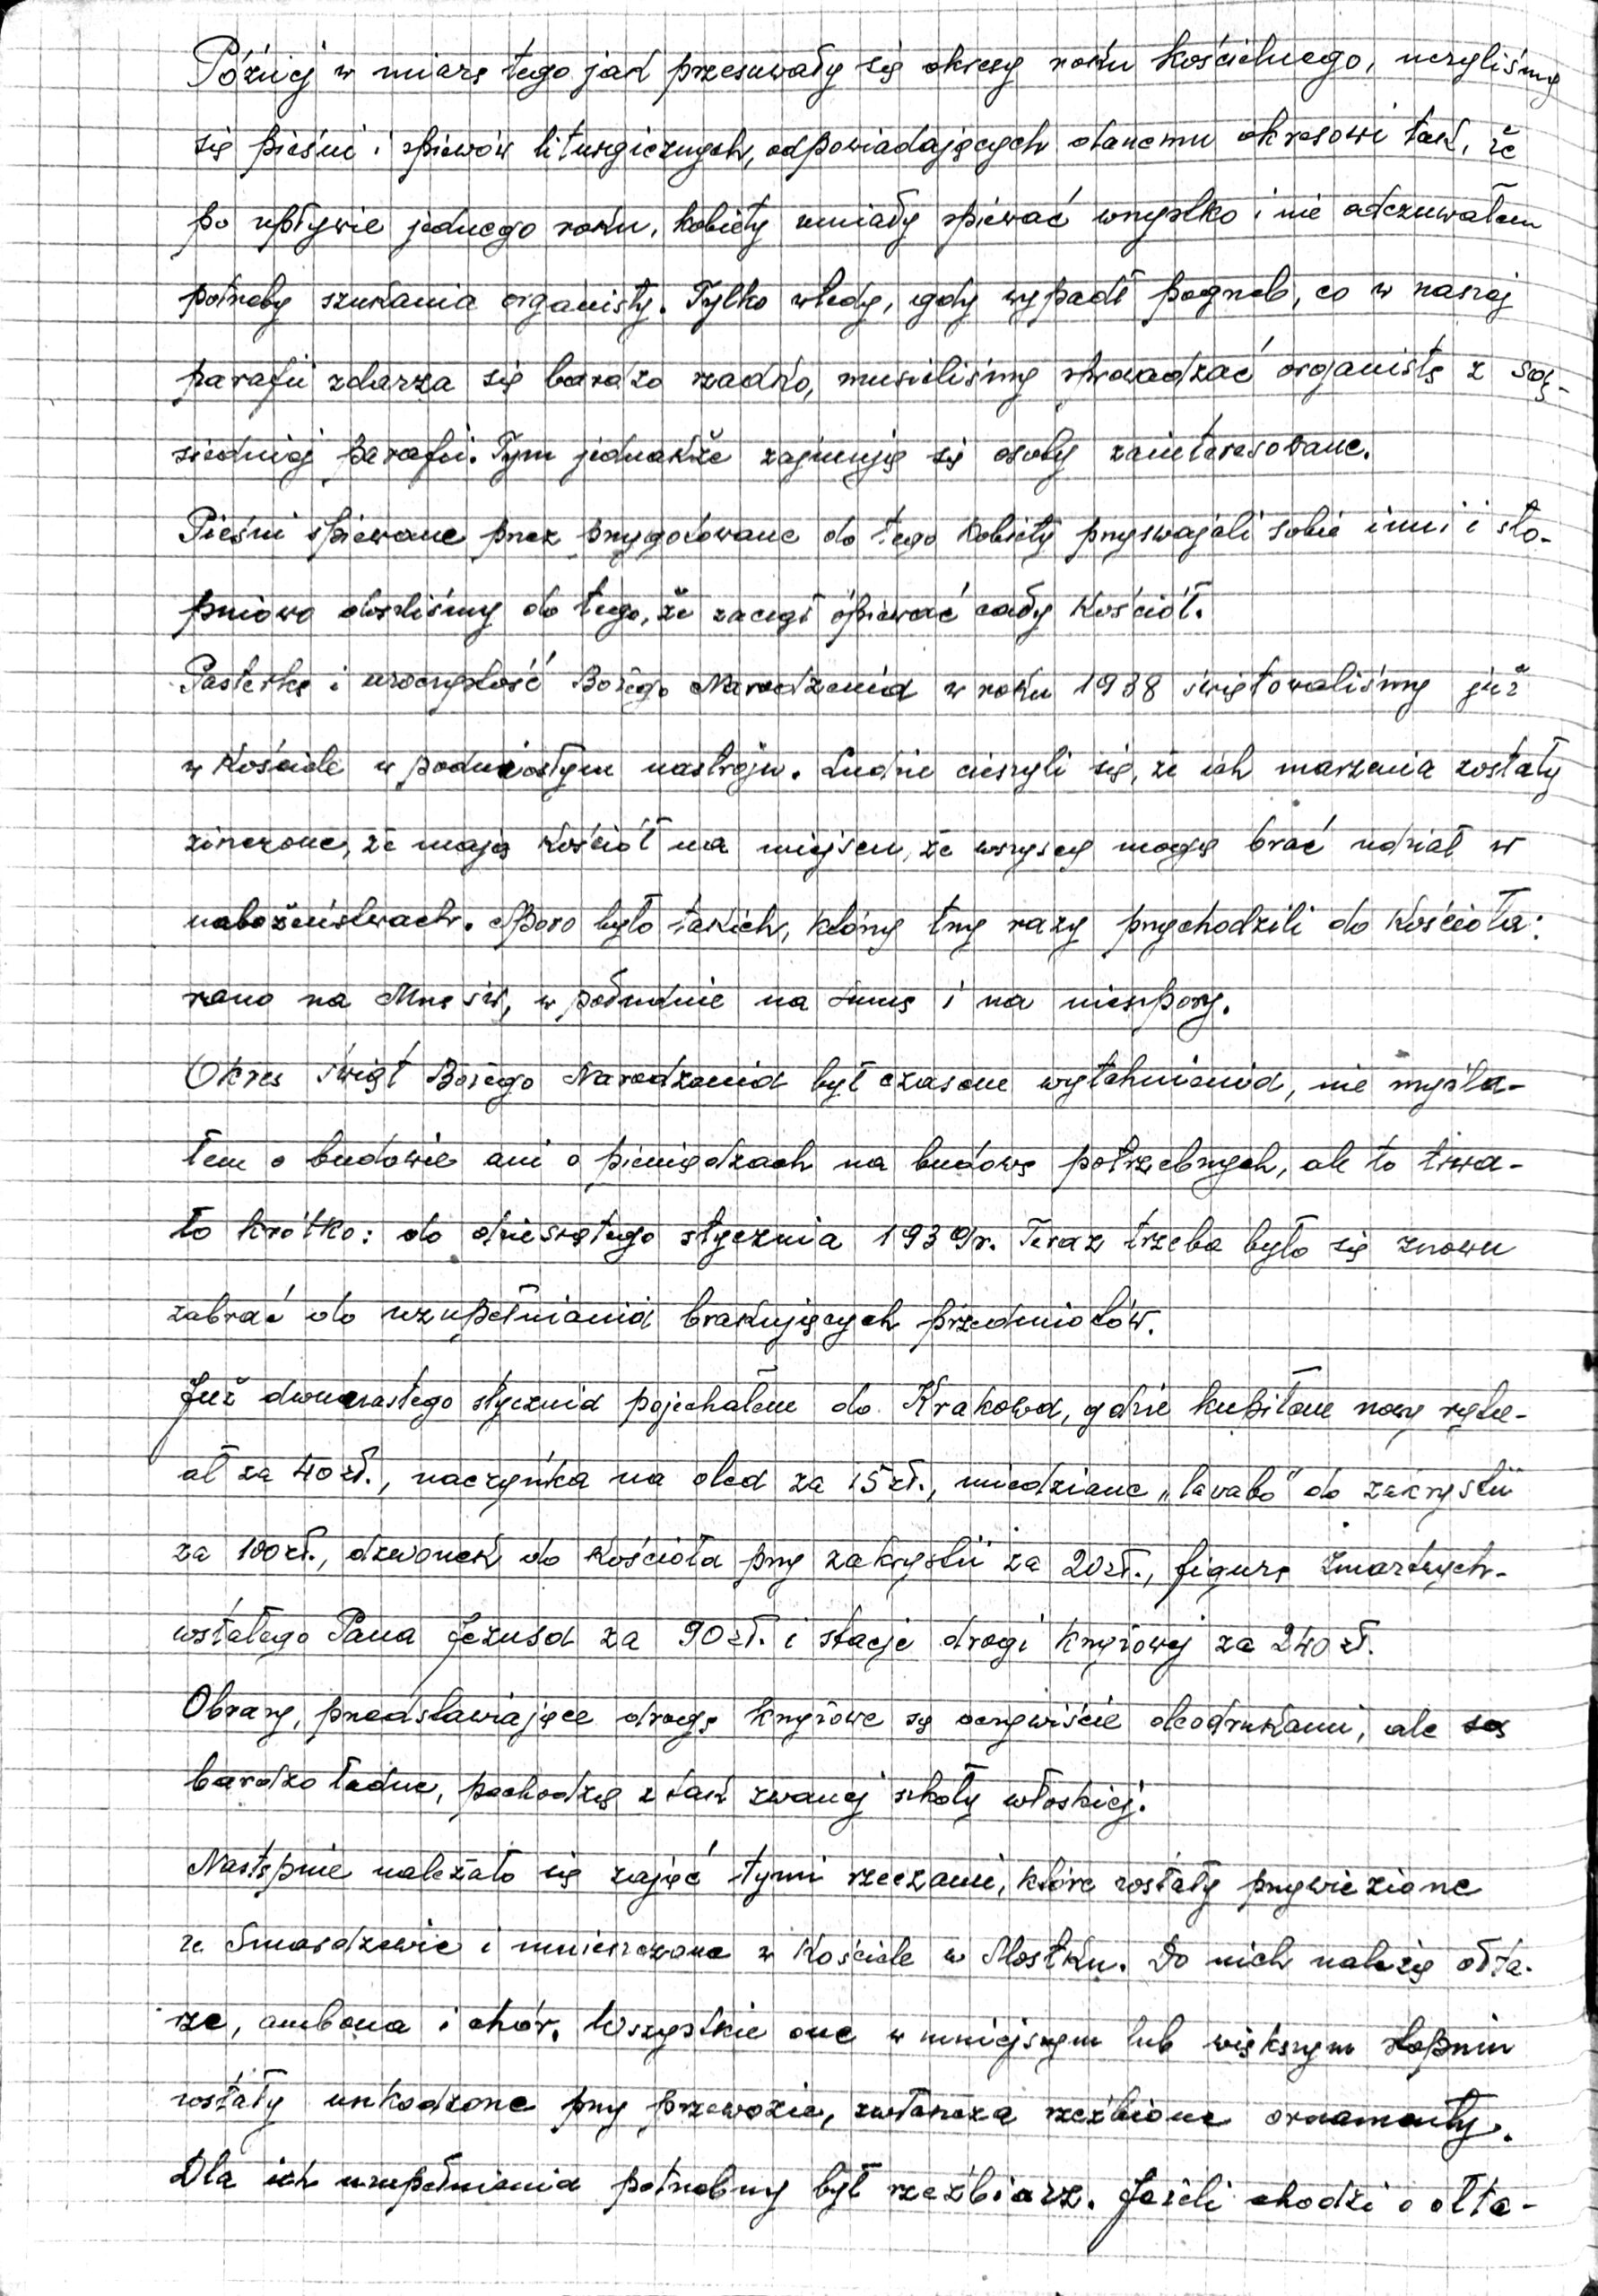 Później w miarę tego jak przesuwały się okresy roku kościelnego, uczyliśmy
się pieśni i śpiewów liturgicznych, odpowiadających danemu okresowi tak, że
po upływie jednego roku, kobiety umiały śpiewać wszystko i nie odczuwałem
potrzeby szukania organisty. Tylko wtedy, gdy wypadł pogrzeb, co w naszej
parafii zdarza się bardzo rzadko, musieliśmy sprowadzać organistę z są-
siedniej parafii. Tym jednakże zajmują się osoby zainteresowane.
Pieśni śpiewane przez przygotowane do tego kobiety przyswajali sobie inni i sto-
pniowo doszliśmy do tego, że zaczął śpiewać cały Kościół.
Pasterkę i uroczystość Bożego Narodzenia w roku 1938 świętowaliśmy już
w Kościele w podniosłym nastroju. Ludzie cieszyli się, że ich marzenia zostały
ziszczone, że mają Kościół na miejscu, że wszyscy mogą brać udział w
nabożeństwach. Sporo było takich, którzy trzy razy przychodzili do Kościoła:
rano na Mszę św, w południe na sumę i na nieszpory.
Okres świąt Bożego Narodzenia był czasem wytchnienia, nie myśla-
łem o budowie ani o pieniądzach na budowę potrzebnych, ale to trwa-
ło krótko: do dziesiątego stycznia 1939r. Teraz trzeba było się znowu
zabrać do uzupełniania brakujących przedmiotów.
Już dwunastego stycznia pojechałem do Krakowa, gdzie kupiłem nowy rytu-
ał za 40 zł., naczyńka na olea za 15 zł., miedziane „lavabo" do zakrystii
za 100 zł., dzwonek do Kościoła przy zakrystii za 20 zł., figurę Zmartwych-
wstałego Pana Jezusa za 90 zł. i stacje drogi krzyżowej za 240 zł.
Obrazy, przedstawiające drogę krzyżową są oczywiście oleodrukami, ale są
bardzo ładne, pochodzą z tak zwanej szkoły włoskiej.
Następnie należało się zająć tymi rzeczami, które zostały przywiezione
ze Smardzewic i umieszczone w Kościele w Mostku. Do nich należą ołta-
rze, ambona i chór. Wszystkie one w mniejszym lub większym stopniu
zostały uszkodzone przy przewozie, zwłaszcza rzeźbione ornamenty.
Dla ich uzupełnienia potrzebny był rzeźbiarz. Jeżeli chodzi o ołta-